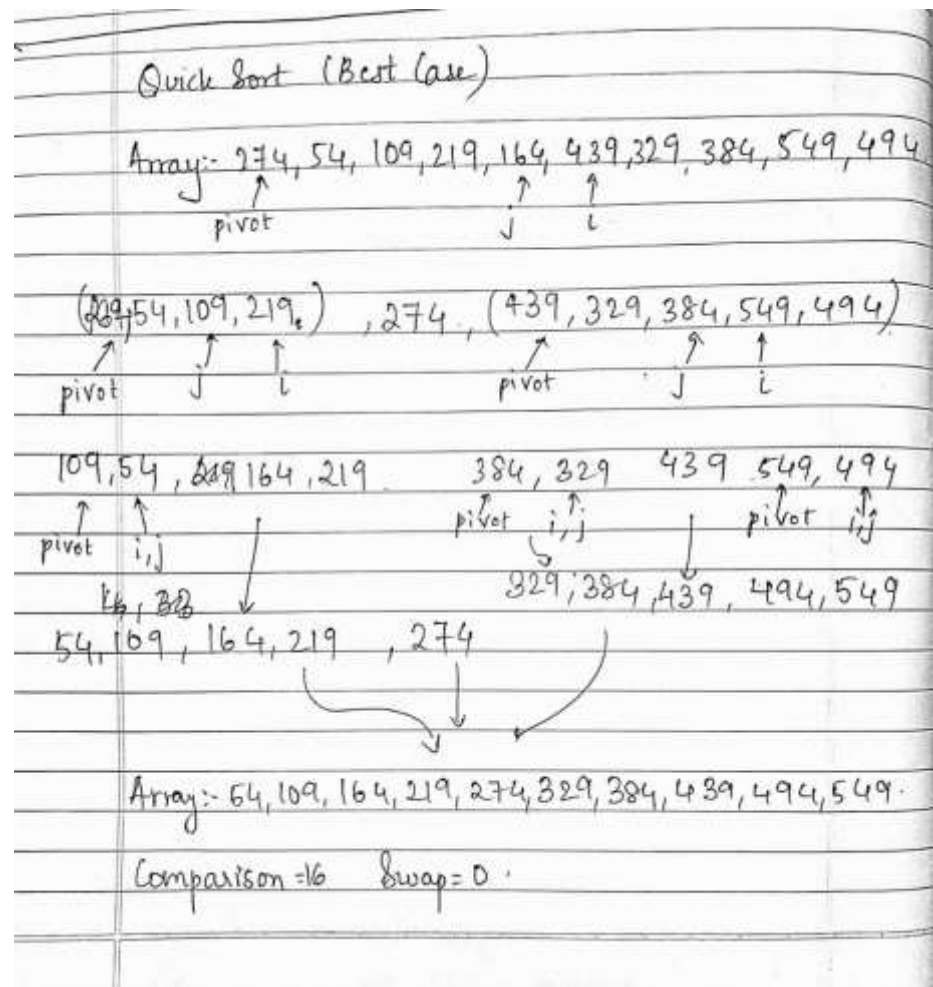 Quick Sort (Best Case)
Array:- 274, 54, 109, 219, 164, 439, 329, 384, 549, 494
pivot j i
( 54, 109, 219, ) , 274 , (439, 329, 384, 549, 494)
pivot j i pivot j i
109, 54, 164, 219 384, 329 439 549, 494
pivot i,j pivot i,j pivot i,j
329, 384, 439, 494, 549
54, 109, 164, 219, 274
Array:- 54, 109, 164, 219, 274, 329, 384, 439, 494, 549.
Comparison =16 Swap= 0.